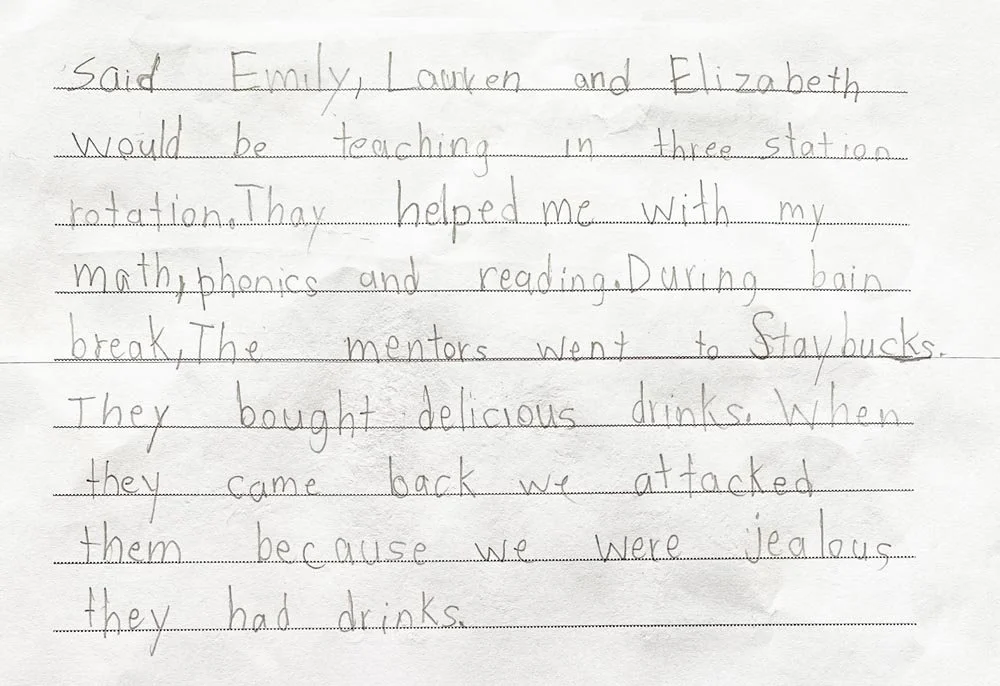 said Emily, Lauren and Elizabeth
would be teaching in three station
rotation. Thay helped me with my
math, phonics and reading. During bain
break, The mentors went to Staybucks.
They bought delicious drinks. When
they came back we attacked
them because we were jealous
they had drinks.